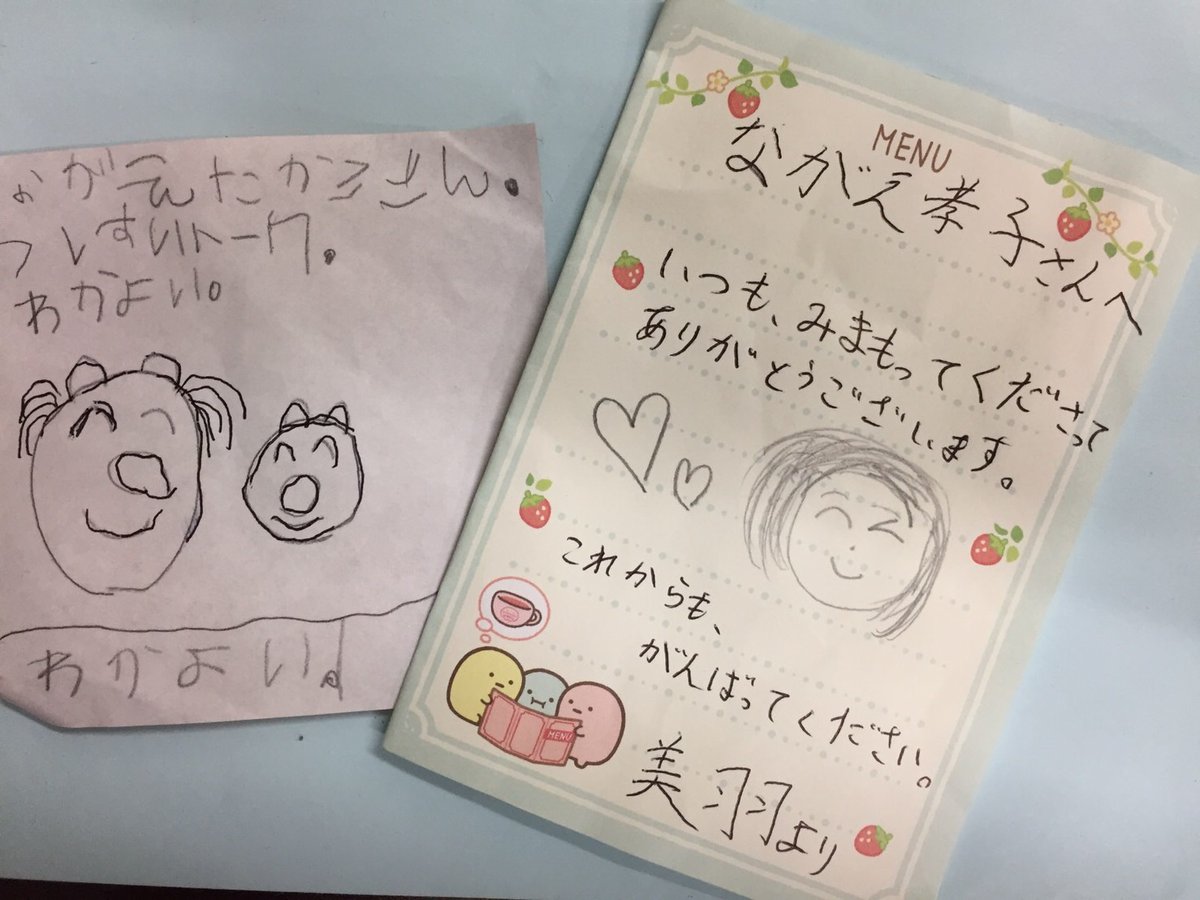 ながえたかこさん。
フレすいトーク。
わかよい。
わかよい。
MENU
ながえ孝子さんへ
いつも、みまもってくださって
ありがとうございます。
これからも、
がんばってください。
MENU
美羽より